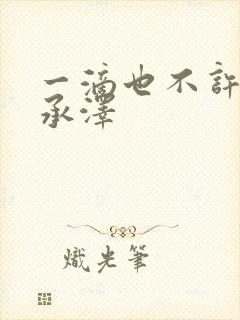 一滴也不許
承澤
熾光筆